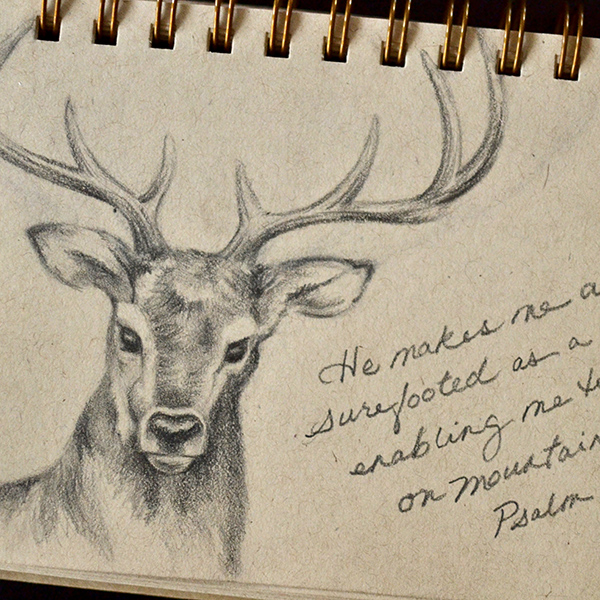 He makes me a
surefooted as a
enabling me t
on mountain
Psalm